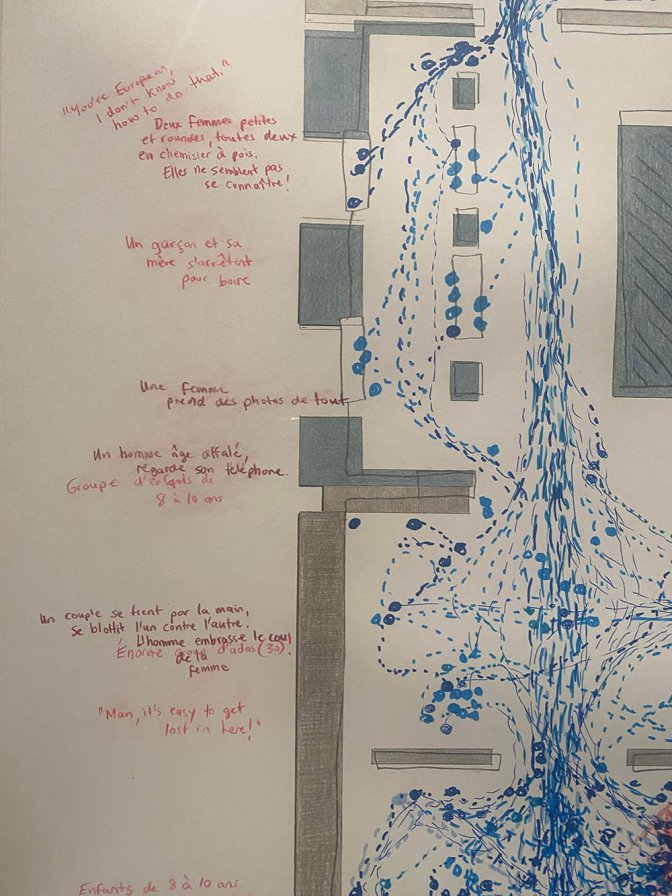 "You're European,
I don't know
how to do that."
Deux femmes petites
et roundes, toutes deux
en chemisier à pois.
Elles ne semblent pas
se connaître!
Un garçon et sa
mère s'arrêtent
pour boire
Une femme
prend des photos de tout
Un homme âge affalé,
regarde son téléphone.
Groupe d'enfants de
8 à 10 ans
Un couple se tient par la main,
se blottit l'un contre l'autre.
L'homme embrasse le cou
Énorme groupe d'ados (30).
de la
femme
"Man, it's easy to get
lost in here!"
Enfants de 8 à 10 ans